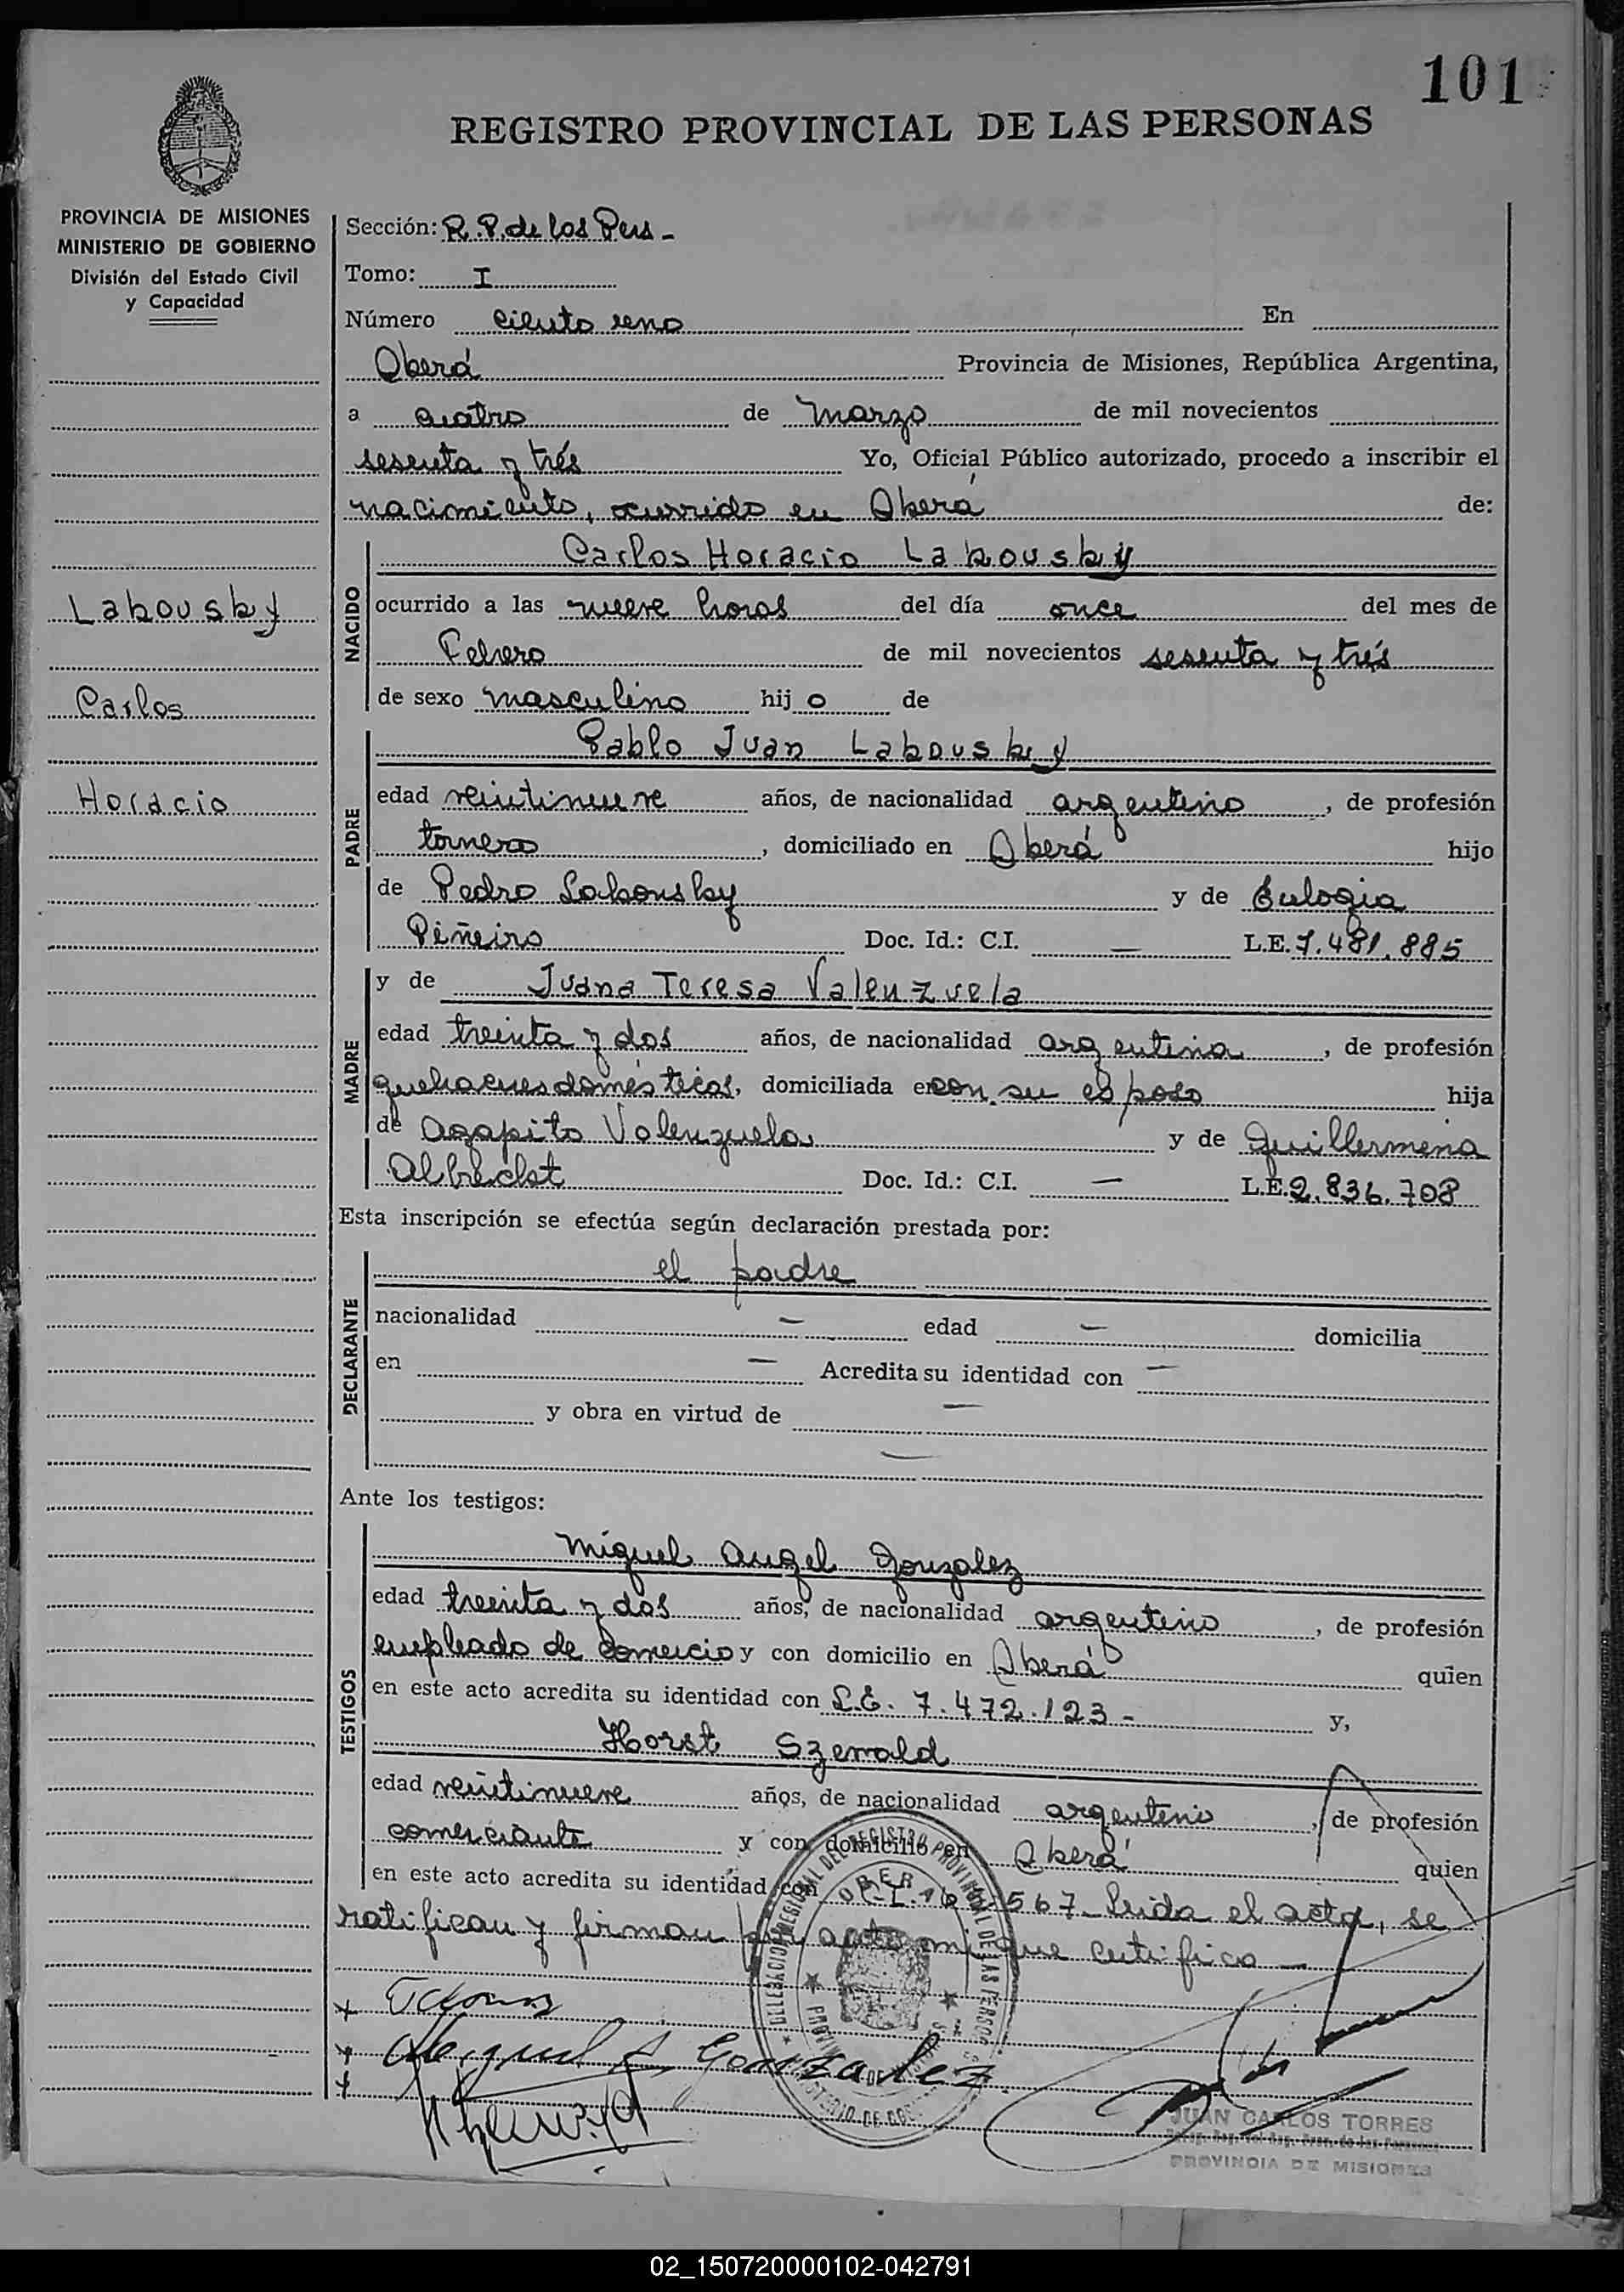 101
REGISTRO PROVINCIAL DE LAS PERSONAS
PROVINCIA DE MISIONES
MINISTERIO DE GOBIERNO
División del Estado Civil
y Capacidad
Labousky
Carlos
Horacio
Sección: R.P. de las Pers -
Tomo: I
Número ciento uno En
Oberá Provincia de Misiones, República Argentina,
a cuatro de marzo de mil novecientos
sesenta y trés Yo, Oficial Público autorizado, procedo a inscribir el
nacimiento, ocurrido en Oberá de:
NACIDO
Carlos Horacio Labousky
ocurrido a las nueve horas del día once del mes de
Febrero de mil novecientos sesenta y trés
de sexo masculino hijo de
PADRE
Pablo Juan Labousky
edad veintinueve años, de nacionalidad argentino, de profesión
tornero, domiciliado en Oberá hijo
de Pedro Labousky y de Eulogia
Piñeiro Doc. Id.: C.I. — L.E. 7.481.885
MADRE
y de Juana Teresa Valenzuela
edad treinta y dos años, de nacionalidad argentina, de profesión
quehaceres domésticos, domiciliada en con su esposo hija
de Agapito Valenzuela y de Guillermina
Albrecht Doc. Id.: C.I. — L.E. 2.836.708
Esta inscripción se efectúa según declaración prestada por:
DECLARANTE
el padre
nacionalidad — edad — domicilia
en — Acredita su identidad con —
y obra en virtud de —
—
Ante los testigos:
TESTIGOS
Miguel Angel Gonzalez
edad treinta y dos años, de nacionalidad argentino, de profesión
empleado de comercio y con domicilio en Oberá quien
en este acto acredita su identidad con L.E. 7.472.123 - y,
Horst Szewald
edad veintinueve años, de nacionalidad argentino, de profesión
comerciante y con domicilio en Oberá quien
en este acto acredita su identidad con 567 - Leida el acta, se
ratifican y firman por ante mi que certifico —
Miguel A Gonzalez
OBERA
JUAN CARLOS TORRES
PROVINCIA DE MISIONES
02_150720000102-042791